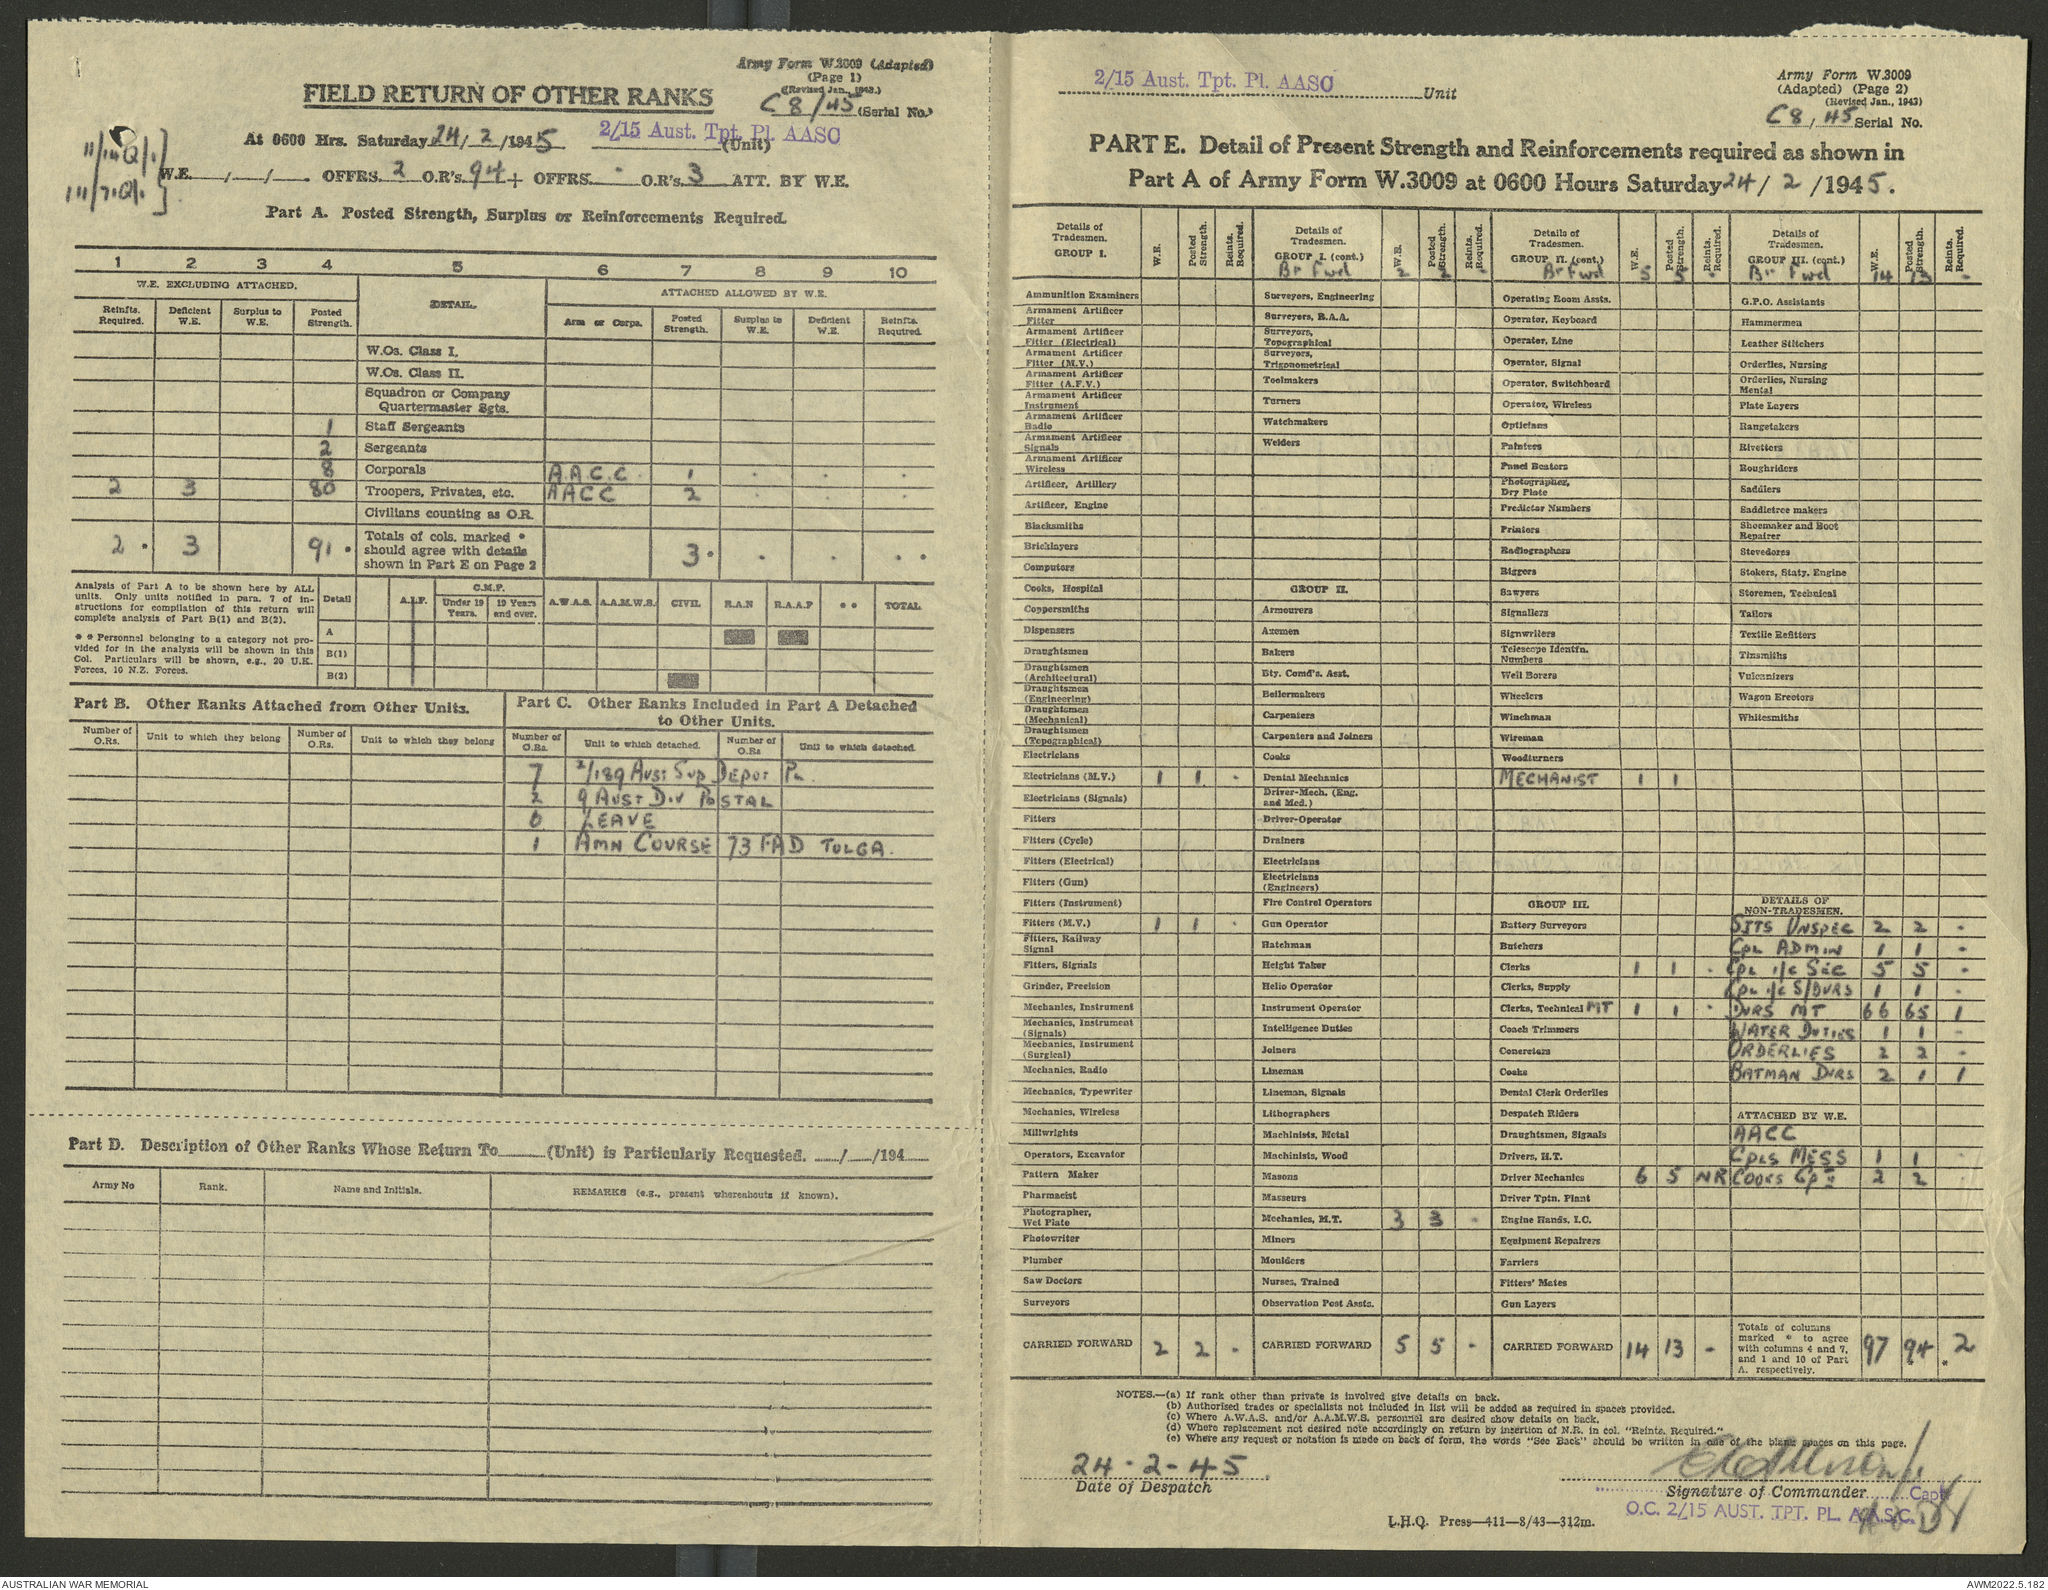 Army Form W.3009 (Adapted)
(Page 1)
(Revised Jan., 1943.)
FIELD RETURN OF OTHER RANKS
C8/45 (Serial No.)
At 0600 Hrs. Saturday 24/2/1945 2/15 Aust. Tpt. Pl. AASC (Unit)
W.E. / / . OFFRS. 2 O.R's. 94 + OFFRS. - O.R's. 3 ATT. BY W.E.
Part A. Posted Strength, Surplus or Reinforcements Required.
1 2 3 4 5 6 7 8 9 10
W.E. EXCLUDING ATTACHED. DETAIL. ATTACHED ALLOWED BY W.E.
Reinfts. Required. Deficient W.E. Surplus to W.E. Posted Strength. Arm or Corps. Posted Strength. Surplus to W.E. Deficient W.E. Reinfts. Required.
W.Os. Class I.
W.Os. Class II.
Squadron or Company
Quartermaster Sgts.
1 Staff Sergeants
2 Sergeants
8 Corporals A.A.C.C. 1 . . .
2 3 80 Troopers, Privates, etc. AACC 2 . . .
Civilians counting as O.R.
2 * 3 91 * Totals of cols. marked * 3 * . . . *
should agree with details
shown in Part E on Page 2
Analysis of Part A to be shown here by ALL
units. Only units notified in para. 7 of in-
structions for compilation of this return will
complete analysis of Part B(1) and B(2).
* * Personnel belonging to a category not pro-
vided for in the analysis will be shown in this
Col. Particulars will be shown, e.g., 20 U.K.
Forces, 10 N.Z. Forces.
Detail A.I.F. C.M.F. Under 19 Years. 19 Years and over. A.W.A.S. A.A.M.W.S. CIVIL R.A.N R.A.A.F * * TOTAL
A
B(1)
B(2)
Part B. Other Ranks Attached from Other Units.
Number of O.Rs. Unit to which they belong Number of O.Rs. Unit to which they belong
Part C. Other Ranks Included in Part A Detached
to Other Units.
Number of O.Rs. Unit to which detached. Number of O.Rs Unit to which detached.
7 2/189 AUST SUP DEPOT PL.
2 9 AUST DIV POSTAL
6 LEAVE
1 AMN COURSE 73 FAD TOLGA.
Part D. Description of Other Ranks Whose Return To (Unit) is Particularly Requested. / /194
Army No Rank. Name and Initials. REMARKS (e.g., present whereabouts if known).
2/15 Aust. Tpt. Pl. AASC Unit
Army Form W.3009
(Adapted) (Page 2)
(Revised Jan., 1943)
C8/45 Serial No.
PART E. Detail of Present Strength and Reinforcements required as shown in
Part A of Army Form W.3009 at 0600 Hours Saturday 24/2/1945.
Details of Tradesmen. GROUP I. W.E. Posted Strength. Reints. Required.
Ammunition Examiners
Armament Artificer Fitter
Armament Artificer Fitter (Electrical)
Armament Artificer Fitter (M.V.)
Armament Artificer Fitter (A.F.V.)
Armament Artificer Instrument
Armament Artificer Radio
Armament Artificer Signals
Armament Artificer Wireless
Artificer, Artillery
Artificer, Engine
Blacksmiths
Bricklayers
Computors
Cooks, Hospital
Coppersmiths
Dispensers
Draughtsmen
Draughtsmen (Architectural)
Draughtsmen (Engineering)
Draughtsmen (Mechanical)
Draughtsmen (Topographical)
Electricians
Electricians (M.V.) 1 1 -
Electricians (Signals)
Fitters
Fitters (Cycle)
Fitters (Electrical)
Fitters (Gun)
Fitters (Instrument)
Fitters (M.V.) 1 1 -
Fitters, Railway Signal
Fitters, Signals
Grinder, Precision
Mechanics, Instrument
Mechanics, Instrument (Signals)
Mechanics, Instrument (Surgical)
Mechanics, Radio
Mechanics, Typewriter
Mechanics, Wireless
Millwrights
Operators, Excavator
Pattern Maker
Pharmacist
Photographer, Wet Plate
Photowriter
Plumber
Saw Doctors
Surveyors
CARRIED FORWARD 2 2 -
Details of Tradesmen. GROUP I. (cont.) W.E. Posted Strength. Reints. Required.
Br Fwd 2 2 -
Surveyors, Engineering
Surveyors, R.A.A.
Surveyors, Topographical
Surveyors, Trigonometrical
Toolmakers
Turners
Watchmakers
Welders
GROUP II.
Armourers
Axemen
Bakers
Bty. Comd's. Asst.
Boilermakers
Carpenters
Carpenters and Joiners
Cooks
Dental Mechanics
Driver-Mech. (Eng. and Med.)
Driver-Operator
Drainers
Electricians
Electricians (Engineers)
Fire Control Operators
Gun Operator
Hatchman
Height Taker
Helio Operator
Instrument Operator
Intelligence Duties
Joiners
Lineman
Lineman, Signals
Lithographers
Machinists, Metal
Machinists, Wood
Masons
Masseurs
Mechanics, M.T. 3 3 -
Miners
Moulders
Nurses, Trained
Observation Post Assts.
CARRIED FORWARD 5 5 -
Details of Tradesmen. GROUP II. (cont.) W.E. Posted Strength. Reints. Required.
Br Fwd 5 5 -
Operating Room Assts.
Operator, Keyboard
Operator, Line
Operator, Signal
Operator, Switchboard
Operator, Wireless
Opticians
Painters
Panel Beaters
Photographer, Dry Plate
Predictor Numbers
Printers
Radiographers
Riggers
Sawyers
Signallers
Signwriters
Telescope Identfn. Numbers
Well Borers
Wheelers
Winchman
Wireman
Woodturners
MECHANIST 1 1
GROUP III.
Battery Surveyors
Butchers
Clerks 1 1 -
Clerks, Supply
Clerks, Technical MT 1 1 -
Coach Trimmers
Concretors
Cooks
Dental Clerk Orderlies
Despatch Riders
Draughtsmen, Signals
Drivers, H.T.
Driver Mechanics 6 5 NR
Driver Tptn. Plant
Engine Hands, I.C.
Equipment Repairers
Farriers
Fitters' Mates
Gun Layers
CARRIED FORWARD 14 13 -
Details of Tradesmen. GROUP III. (cont.) W.E. Posted Strength. Reints. Required.
Br Fwd 14 13 -
G.P.O. Assistants
Hammermen
Leather Stitchers
Orderlies, Nursing
Orderlies, Nursing Mental
Plate Layers
Rangetakers
Rivetters
Roughriders
Saddlers
Saddletree makers
Shoemaker and Boot Repairer
Stevedores
Stokers, Staty. Engine
Storemen, Technical
Tailors
Textile Refitters
Tinsmiths
Vulcanizers
Wagon Erectors
Whitesmiths
DETAILS OF NON-TRADESMEN.
SJTS UNSPEC 2 2 -
CPL ADMIN 1 1 -
CPL I/C SEC 5 5 -
CPL I/C S/DVRS 1 1 -
DVRS MT 66 65 1
WATER DUTIES 1 1 -
ORDERLIES 2 2 -
BATMAN DVRS 2 1 1
ATTACHED BY W.E.
AACC
CPLS MESS 1 1
COOKS GpII 2 2
Totals of columns marked * to agree with columns 4 and 7, and 1 and 10 of Part A. respectively. 97 94 * 2
NOTES.—(a) If rank other than private is involved give details on back.
(b) Authorised trades or specialists not included in list will be added as required in spaces provided.
(c) Where A.W.A.S. and/or A.A.M.W.S. personnel are desired show details on back.
(d) Where replacement not desired note accordingly on return by insertion of N.R. in col. "Reints. Required."
(e) Where any request or notation is made on back of form, the words "See Back" should be written in one of the blank spaces on this page.
24-2-45
Date of Despatch
Signature of Commander Capt
O.C. 2/15 AUST. TPT. PL. A.A.S.C.
L.H.Q. Press—411—8/43—312m.
AUSTRALIAN WAR MEMORIAL
AWM2022.5.182